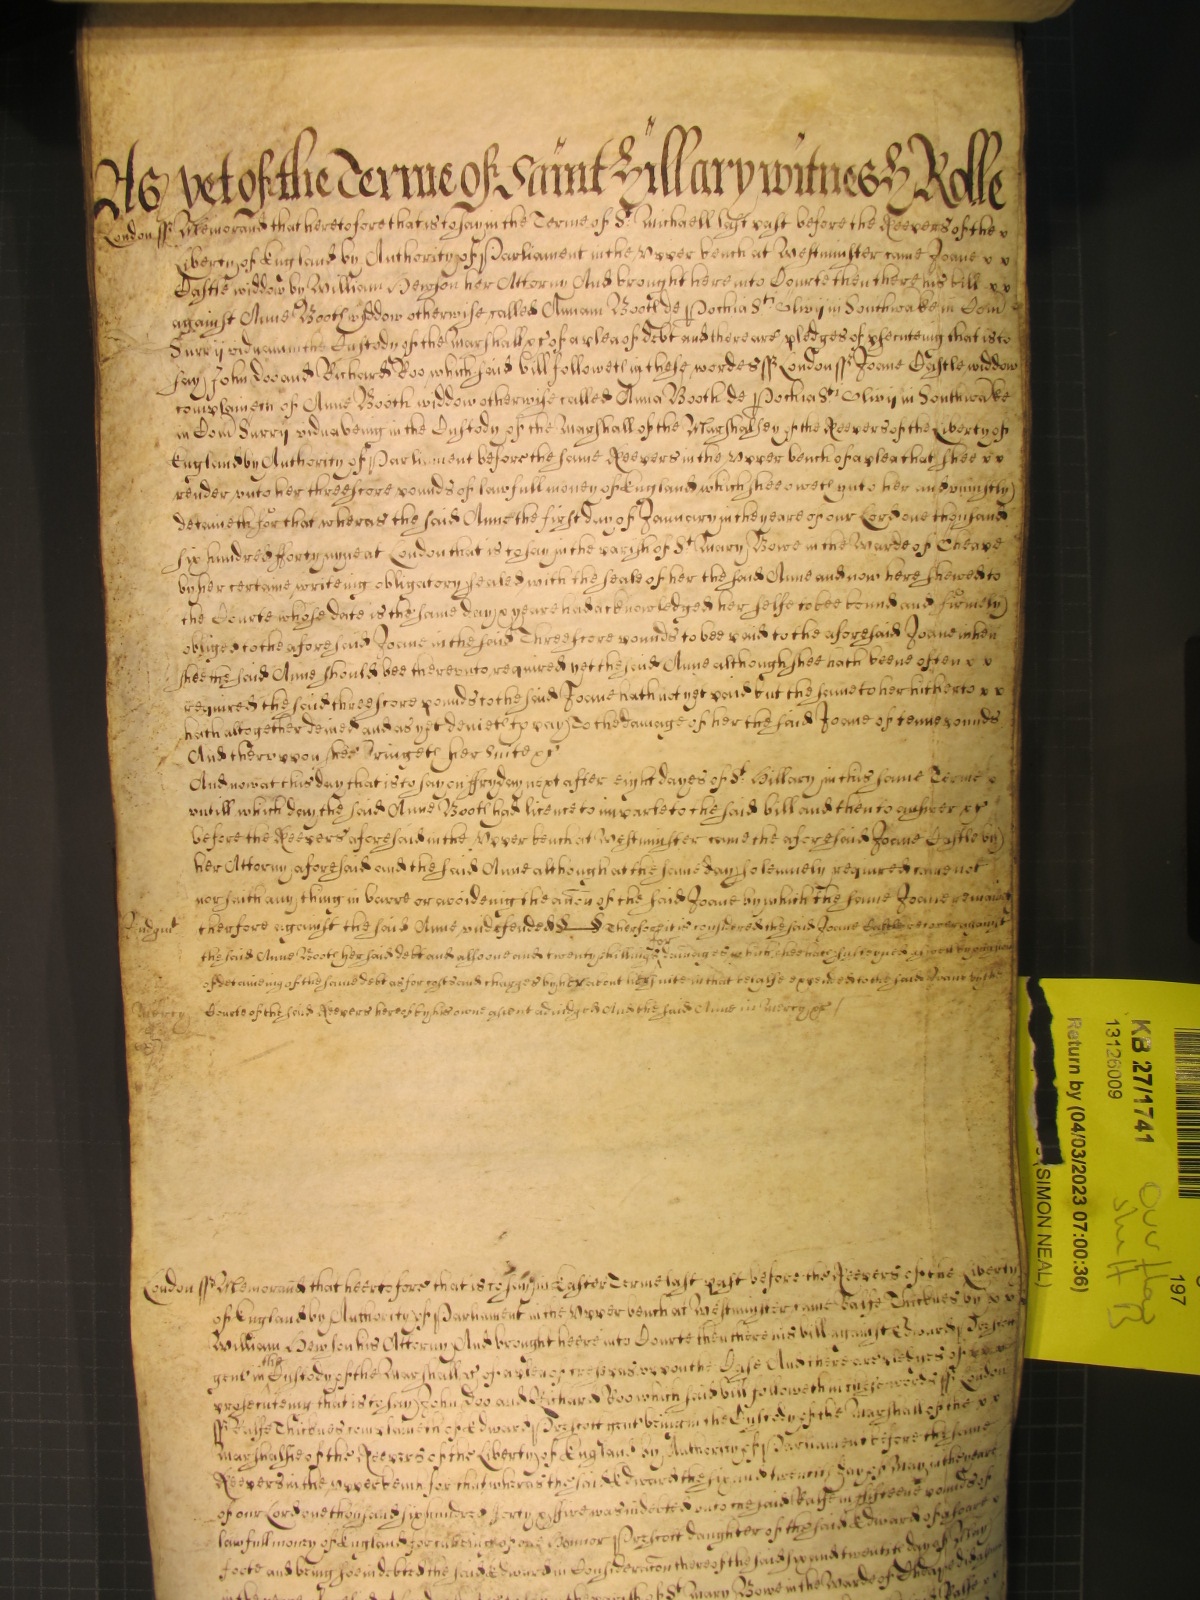 As yet of the Terme of Saint Hillary witnes H Rolle
London ss Memorand that heretofore that is to say in the Terme of St Michaell last past before the Keepers of the
Liberty of England by Authority of Parliament in the Upper bench at Westminster came Joane
Castle widdow by William Hewson her Attorny And brought here into Courte then there his bill
against Anne Booth widdow otherwise called Annam Booth de Pochia Sti Olivij in Southwarke in Com
Surrij viduam in the Custody of the Marshall &c of a plea of debt and there are pledges of prsecuteing that is to
say John Doo and Richard Roo which said bill followeth in these wordes ss London ss Joane Castle widdow
complaineth of Anne Booth widdow otherwise called Anna Booth de Pochia Sti Olivij in Southwarke
in Com Surrij vidua being in the Custody of the Marshall of the Marshalsey of the Keepers of the Liberty of
England by Authority of Parliament before the same Keepers in the Upper bench of a plea that shee
render unto her threescore pounds of lawfull money of England which shee oweth unto her and uniustly
detaineth for that wheras the said Anne the first day of January in the yeare of our Lord one thousand
six hundred fforty nyne at London that is to say in the parish of St Mary Bowe in the Warde of Cheape
by her certaine writeing obligatory sealed with the seale of her the said Anne and now here shewed to
the Courte whose date is the same day & yeare had acknowledged her selfe to bee bound and firmely
obliged to the aforesaid Joane in the said Threescore pounds to bee paid to the aforesaid Joane when
shee the said Anne should bee thereunto required yet the said Anne although shee hath beene often
required the said threescore pounds to the said Joane hath not yet paid but the same to her hitherto
hath altogether denied and as yet denieth to pay To the damage of her the said Joane of tenne pounds
And thereuppon shee bringeth her suite &c
And now at this day that is to say on ffryday next after eight dayes of St Hillary in this same Terme
untill which day the said Anne Booth had licence to imparle to the said bill and then to answer &c
before the Keepers aforesaid in the Upper bench at Westminster came the aforesaid Joane Castle by
her Attorny aforesaid and the said Anne although at the same day solemnely required came not
nor saith any thing in barre or avoideing the accon of the said Joane by which the same Joane remaineth
Judgmt therfore against the said Anne undefended Therfore it is considered the said Joane Castle recover against
the said Anne Booth her said debt and alsoe one and twenty shillings for damages which shee hath susteyned aswell by occasion
of detaineing of the same debt as for costs and charges by her about her suite in that behalfe expended to the said Joane by the
Mercy Courte of the said Keepers here of by his owne assent adiudged And the said Anne in Mercy &c
London ss Memorand that heertofore that is to say in Easter Terme last past before the Keepers of the Liberty
of England by Authority of Parliament in the Upper bench at Westminster came Ralfe Thicknes by
William Hewson his Attorny And brought heere into Courte then there his bill against Edward Prescott
gent in the Custody of the Marshall &c of a plea of trespas uppon the Case And there are pledges of
prosecuteing that is to say John Doo and Richard Roo which said bill followeth in these wordes ss London
ss Ralfe Thicknes complaineth of Edward Prescott gent being in the Custody of the Marshall of the
Marshalsie of the Keepers of the Liberty of England by Authority of Parliament before the same
Keepers in the Upper bench for that wheras the said Edward the six and twentith day of May in the yeare
of our Lord one thousand six hundred forty & five was indebted unto the said Ralfe in fifteene pounds of
lawfull money of England for tableing of one Prescott daughter of the said Edward of afore
tofore and being soe indebted the said Edward in Consideracon thereof the said six and twentith day of May
parish of St Mary Bowe in the Warde of Cheape
KB 27/1741
13126009
Return by (04/03/2023 07:00:36)
(SIMON NEAL)
197